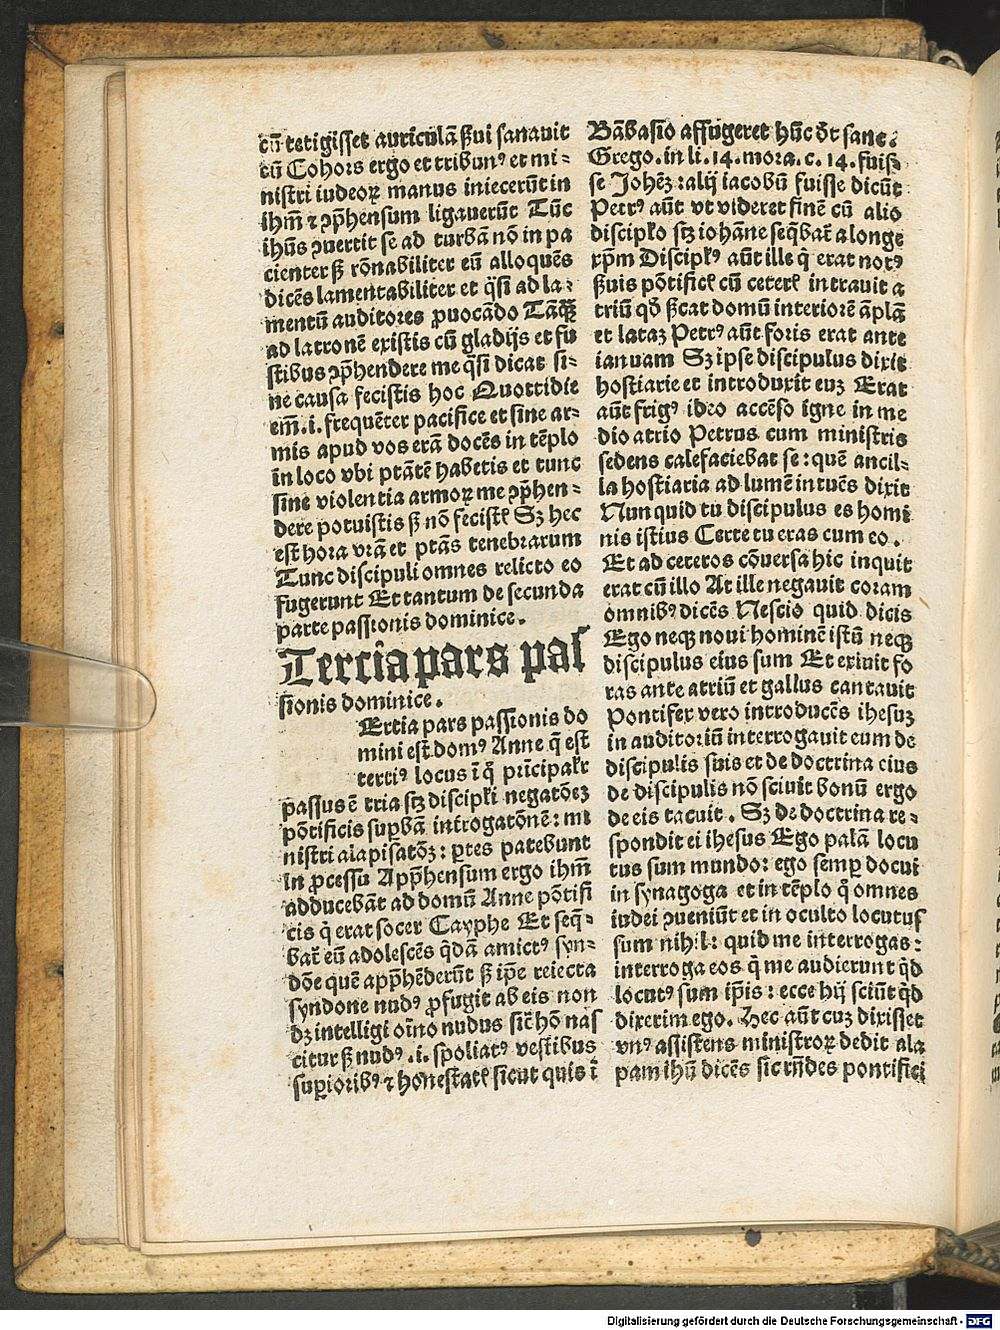 cū tetigisset auriculā ẜui sanauit
cū Cohors ergo et tribunꝰ et mi⸗
nistri iudeoꝝ manus iniecerūt in
ihm̄ ⁊ ꝯp̄hensum ligauerūt Tūc
ihūs ꝯuertit se ad turbā nō in pa
cienter ẜꝫ rōnabiliter eū alloquēs
dicēs lamentabiliter et q̄si ad la⸗
mentū auditores ꝓuocādo Tāqꝫ
ad latronē existis cū gladijs et fu
stibus ꝯp̄hendere me q̄si dicat si⸗
ne causa fecistis hoc Quottidie
em̄.i. frequēter pacifice et sine ar⸗
mis apud vos erā docēs in tēplo
in loco vbi ptātē habetis et tunc
sine violentia armoꝝ me ꝯp̄hen⸗
dere potuistis ẜꝫ nō fecistꝭ Sꝫ hec
est hora vr̄a et ptās tenebrarum
Tunc discipuli omnes relicto eo
fugerunt Et tantum de secunda
parte passionis dominice.
Tercia pars pas
sionis dominice.
Ertia pars passionis do
mini est domꝰ Anne q̄ est
tertiꝰ locus ī q̄ prīcipalr̄
passus ē tria stꝫ discipl̄i negatōeꝫ
pōtificis supbā intrrogatōnē: mi
nistri alapisatōꝫ: ꝑtes patebunt
In ꝓcessu App̄hensum ergo ihm̄
adducebāt ad domū Anne pōtifi
cis q̄ erat socer Cayphe Et seq̄⸗
bat᷑ eū adolescēs q̄dā amictꝰ syn⸗
dōe quē app̄hēderūt ẜꝫ ip̄e reiecta
syndone nudꝰ ꝓfugit ab eis non
dꝫ intelligi oīno nudus sic̄ hō nas
citur ẜꝫ nudꝰ .i. spoliatꝰ vestibus
supioribꝰ ⁊ honestatꝭ sicut quis ī
Bābasio affugeret hūc d̄t sanc.
Grego. in li. 14. mora. c. 14. fuis
se Johēꝫ: alij iacobū fuisse dicūt
Petrꝰ aūt vt videret finē cū alio
discipl̄o stꝫ iohāne seq̄bat᷑ a longe
xp̄m Discipl̄ꝰ aūt ille q̄ erat notꝰ
ẜuis pōtificꝭ cū ceterꝭ intrauit a
triū qð ẜcat domū interiorē āplā
et lataꝫ Petrꝰ aūt foris erat ante
ianuam Sꝫ ipse discipulus dixit
hostiarie et introduxit euꝫ Erat
aūt frigꝰ ideo accēso igne in me
dio atrio Petrus cum ministris
sedens calefaciebat se: quē ancil⸗
la hostiaria ad lumē intuēs dixit
Nunquid tu discipulus es homi
nis istius Certe tu eras cum eo.
Et ad ceteros cōuersa hic inquit
erat cū illo At ille negauit coram
omnibꝰ dicēs Nescio quid dicis
Ego neqꝫ noui hominē istū neqꝫ
discipulus eius sum Et exiuit fo
ras ante atriū et gallus cantauit
Pontifex vero introducēs ihesuꝫ
in auditoriū interrogauit eum de
discipulis suis et de doctrina eius
de discipulis nō sciuit bonū ergo
de eis tacuit. Sꝫ de doctrina re⸗
spondit ei ihesus Ego palā locu
tus sum mundo: ego semp docui
in synagoga et in tēplo q̄ omnes
iudei ꝯueniūt et in oculto locutus
sum nihil: quid me interrogas:
interroga eos q̄ me audierunt q̄d
locutꝰ sum ip̄is: ecce hij sciūt q̄d
dixerim ego. Hec aūt cuꝫ dixisset
vnꝰ assistens ministroꝝ dedit ala
pam ihū dicēs sic rn̄des pontifici
Digitalisierung gefördert durch die Deutsche Forschungsgemeinschaft - DFG